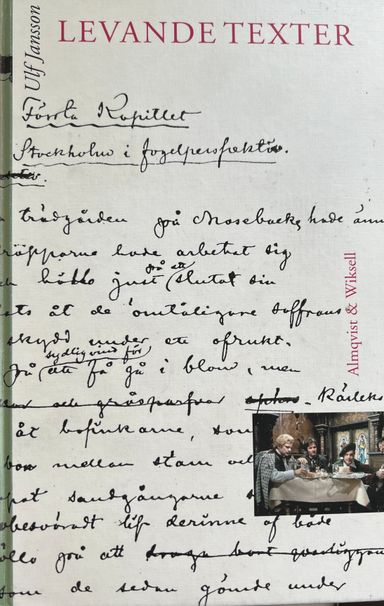 Ulf Jansson
LEVANDE TEXTER
Första Kapitlet
Stockholm i fogelperspektiv.
trädgården på Mosebacke hade änn
dropparne hade arbetat sig
höllo just på att sluta sin
åt de ömtåligare saffrans
skydd under ett ofrukt.
på sydlig vind för att få gå i blom, men
och gråsparfvar Kärleks
åt bofinkarne, som
mellan stam och
sandgångarne
obesväradt lif derinne af både
på att draga bort
som de sedan gömde under
Almqvist & Wiksell